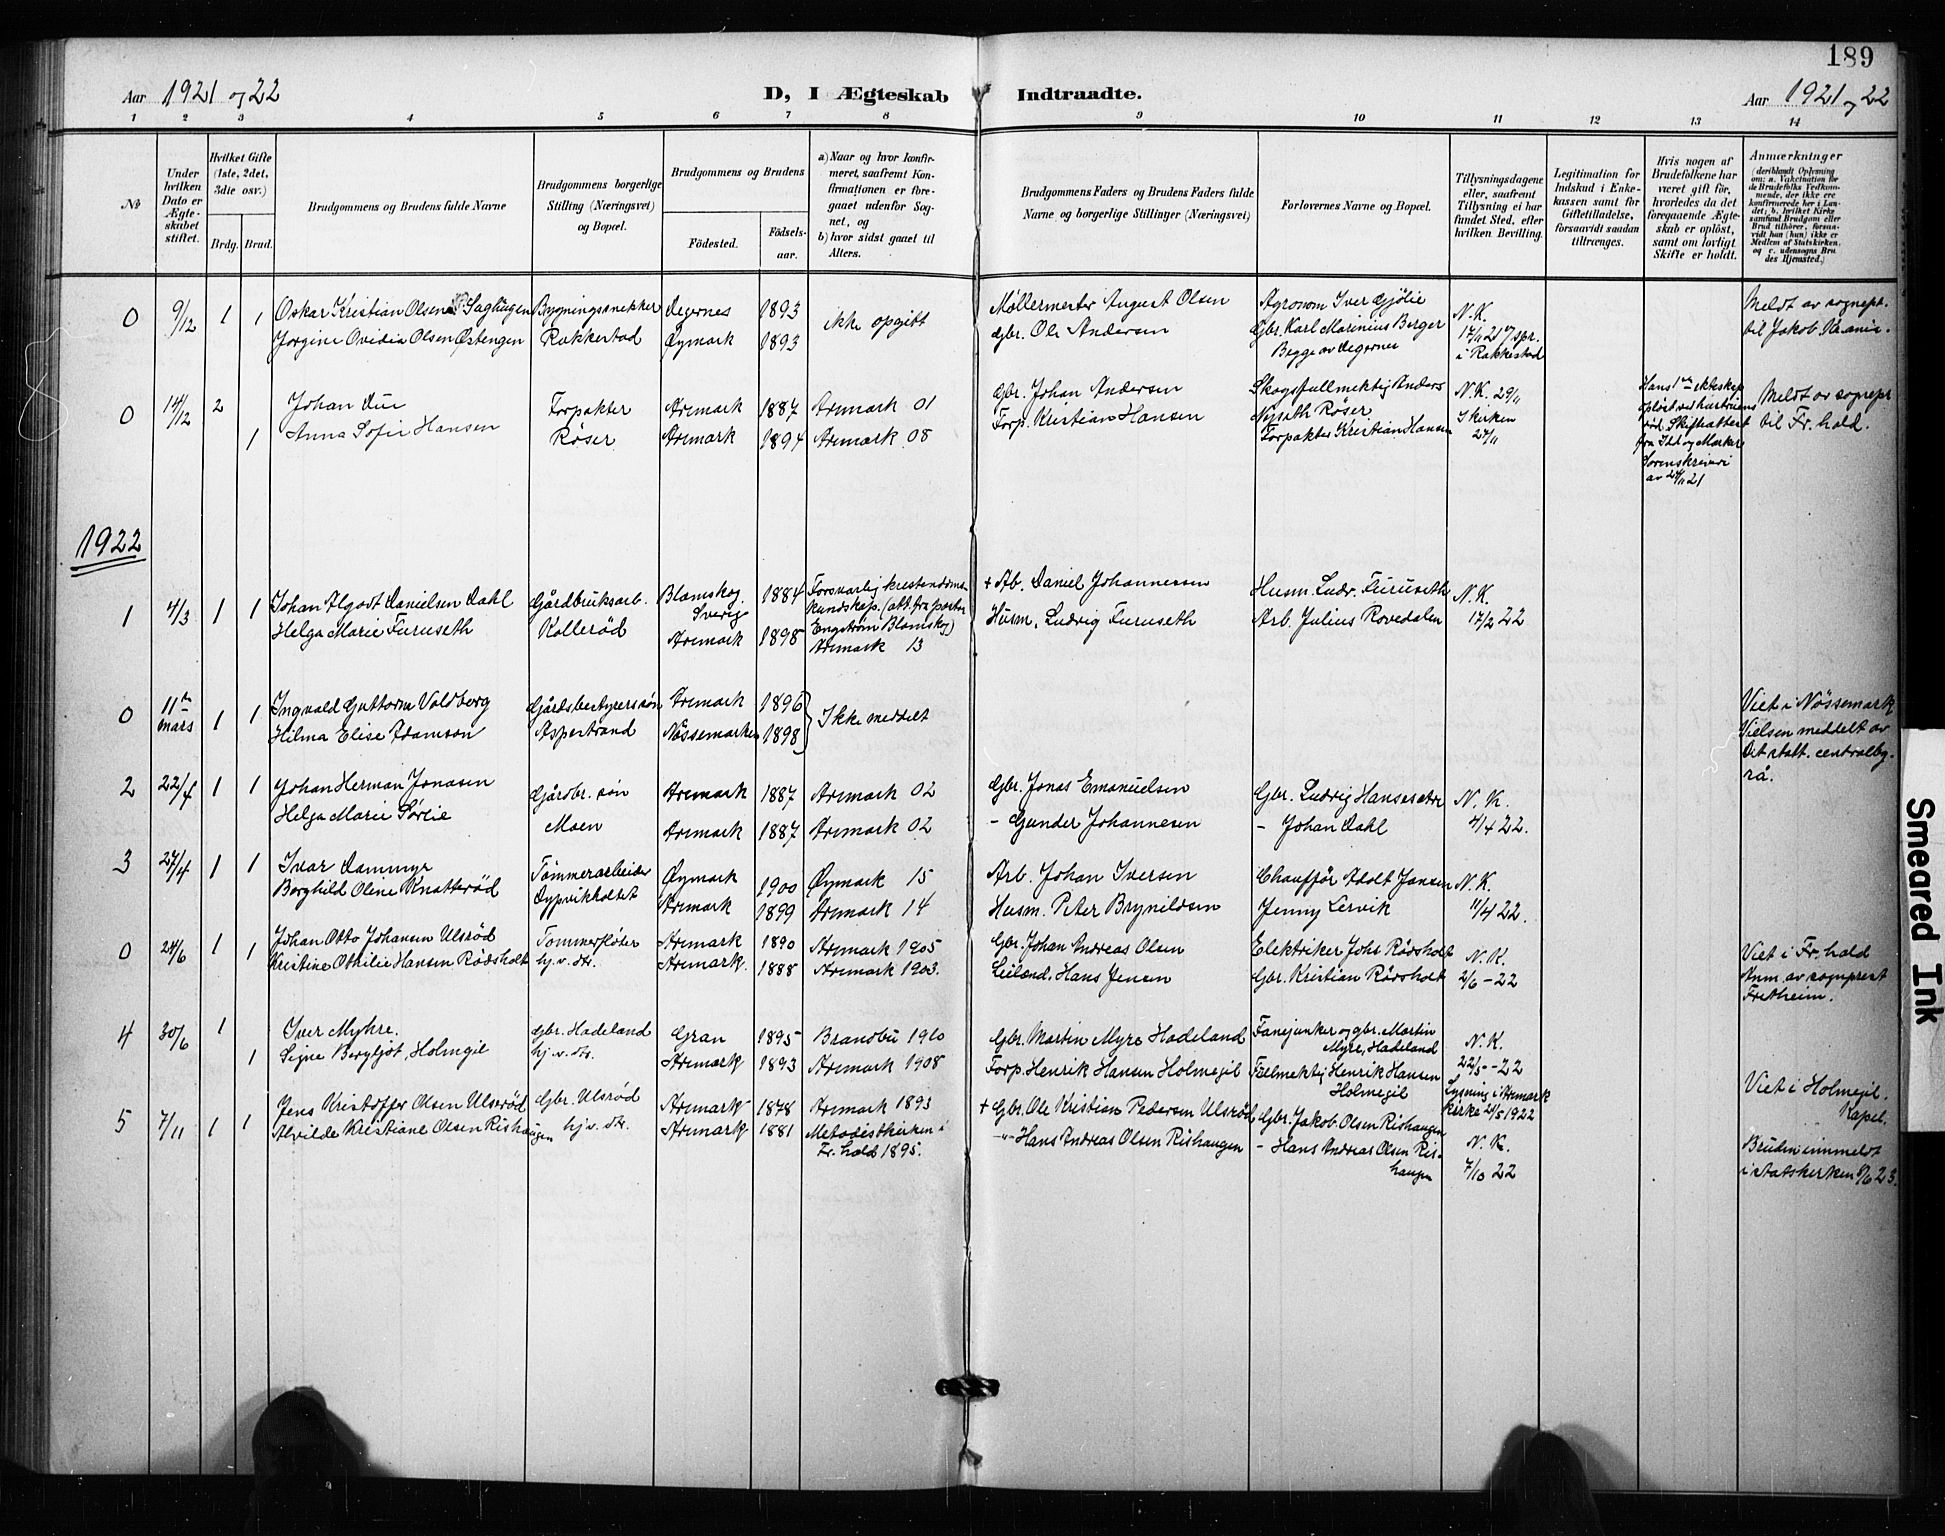 189
Aar 1921 og 22
D, I Ægteskab Indtraadte.
Aar 1921 og 22
1 2 3 4 5 6 7 8 9 10 11 12 13 14
No
Under hvilken Dato er Ægteskabet stiftet.
Hvilket Gifte (1ste, 2det, 3die osv.)
Brdg. Brud.
Brudgommens og Brudens fulde Navne
Brudgommens borgerlige Stilling (Næringsvei) og Bopæl.
Brudgommens og Brudens
Födested. Födsels-aar.
a) Naar og hvor konfirmeret, saafremt Konfirmationen er foregaaet udenfor Sognet, og
b) hvor sidst gaaet til Alters.
Brudgommens Faders og Brudens Faders fulde Navne og borgerlige Stillinger (Næringsvei)
Forlovernes Navne og Bopæl.
Tillysningsdagene eller, saafremt Tillysning ei har fundet Sted, efter hvilken Bevilling.
Legitimation for Indskud i Enkekassen samt for Giftetilladelse, forsaavidt saadan tiltrænges.
Hvis nogen af Brudefolkene har været gift för, hvorledes da det foregaaende Ægteskab er oplöst, samt om lovligt Skifte er holdt.
Anmærkninger (deriblandt Oplysning om: a. Vakcination for de Brudefolks Vedkommende, der ikke ere konfirmerede her i Landet; b. hvilket Kirkesamfund Brudgom eller Brud tilhörer, forsaavidt han (hun) ikke er Medlem af Statskirken, og c. udensogns Brudes Hjemsted.)
0 9/12 1 1 Oskar Kristian Olsen Saghaugen Bygningssnekker Degernes 1893 ikke opgitt Møllermester August Olsen Agronom Iver Gjølie N.K. Meldt av sognepr.
Jorgine Ovidia Olsen Østengen Rakkestad Øymark 1893 gbr. Ole Andersen Gbr. Karl Marinius Berger 17/11 21 i Rakkestad til Jakob
Begge av Degernes
0 14/12 2 Johan Due Forpakter Aremark 1887 Aremark 01 Gbr. Johan Andersen Skogsfullmektig Anders N.K. 29/11 Hans 1ste ekteskap Meldt av sognepr
1 Anna Sofie Hansen Røser Aremark 1894 Aremark 08 Forp. Kristian Hansen Nyseth Röser I kirken opløst ved hustruens til Fr.hald.
Forpakter Kristian Hansen 27/11 död. Skifteattest
fra Idd og Marker
Sorenskriveri
av 24/11 21
1922
1 4/3 1 1 Johan Algodt Danielsen Dahl Gårdbruksarb. Blomskog Sverig 1884 Forsvarlig kristendomskundskap. (att. fra pastor Engstrøm Blomskog) + Ab. Daniel Johannessen Husm. Ludv. Furuseth N.K.
Helga Marie Furuseth Kollerød Aremark 1898 Aremark 13 Husm. Ludvig Furuseth Arb. Julius Rovedalen 17/2 22
0 11te mars 1 1 Ingvald Guttorm Voldberg Gårdsbestyrers søn Aremark 1896 Ikke meddelt Viet i Nössemark
Hilma Elise Adamson Aspestrand Nössemarken 1898 Vielsen meddelt av
Det statt. centralbyrå.
2 22/4 1 1 Johan Herman Jonasen Gårdbr. søn Aremark 1887 Aremark 02 Gbr. Jonas Emanuelsen Gbr. Ludvig N. K.
Helga Marie Sørlie Moen Aremark 1887 Aremark 02 - Gunder Johannesen - Johan Dahl 4/4 22.
3 27/4 1 1 Ivar Dammyr Tømmerarbeider Øymark 1900 Øymark 15 Arb. Johan Iversen Chauffør Adolf Jansen N.K.
Borghild Oline Knatterød Dypvikholtet Aremark 1899 Aremark 14 Husm. Peter Brynildsen Jenny Lervik 11/4 22.
0 24/6 1 1 Johan Otto Johansen Ulsrød Tømmerfløter Aremark 1890 Aremark 1905 Gbr. Johan Andreas Olsen Elektriker Johs Rødsholt N.K. Viet i Fr.hald
Kristine Othilie Hansen Rødsholt hj.v. do. Aremark. 1888 Aremark 1903. Leilænd. Hans Jensen Gbr. Kristian Rødsholt 2/6 - 22 Anm av sogneprest
Fretheim.
4 30/6 1 Iver Myhre. Gbr. Hadeland Gran 1895 Brandbu 1910 Gbr. Martin Myre Hadeland Fanejunker og gbr. Martin Myre, Hadeland N.K.
1 Signe Bergljot Holmgil hj.v. do. Aremark 1893 Aremark 1908 Forp. Henrik Hansen Holmegil Fullmektig Henrik Hansen Holmegil 22/5 - 22
Lysning i Aremark kirke 21/5 1922
Viet i Holmegil Kapel.
5 7/11 1 1 Jens Kristoffer Olsen Ulsrød Gbr. Ulsrød Aremark 1878 Aremark 1893 + Gbr. Ole Kristian Pedersen Ulsrød Gbr. Jakob Olsen Rishaugen N.K.
Alvilde Kristiane Olsen Rishaugen hj.v. do. Aremark 1881 Metodistkirken i Fr.hald 1895. -"- Hans Andreas Olsen Rishaugen - Hans Andreas Olsen Rishaugen 7/10 22
Bruden innmeldt i statskirken 9/6 23.
Smeared Ink